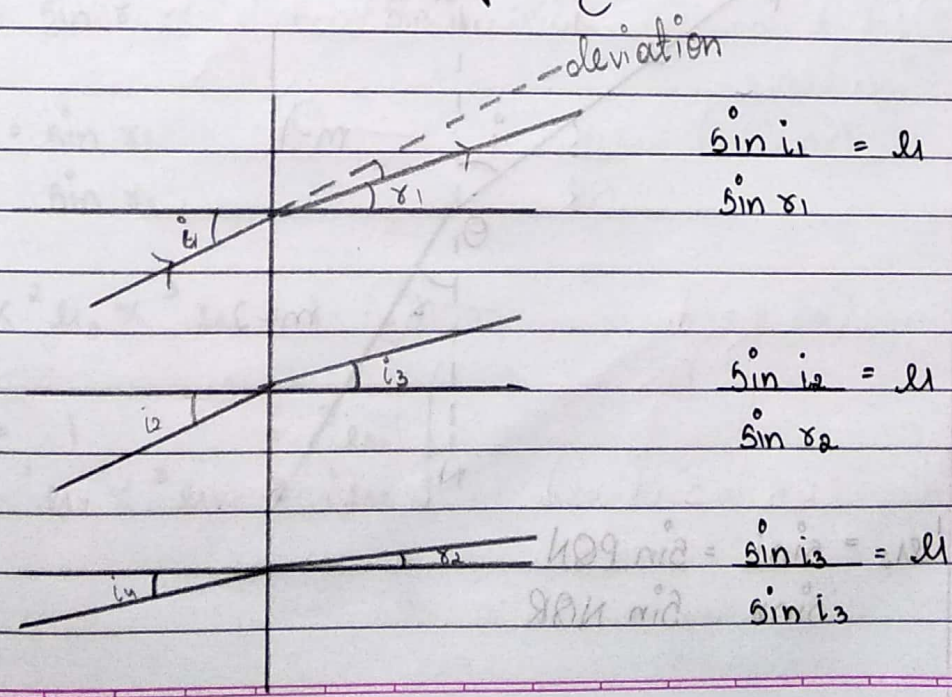 deviation
i1 r1 sin i1 = μ
sin r1
i2 i3 sin i2 = μ
sin r2
i4 r2 sin i3 = μ
sin i3